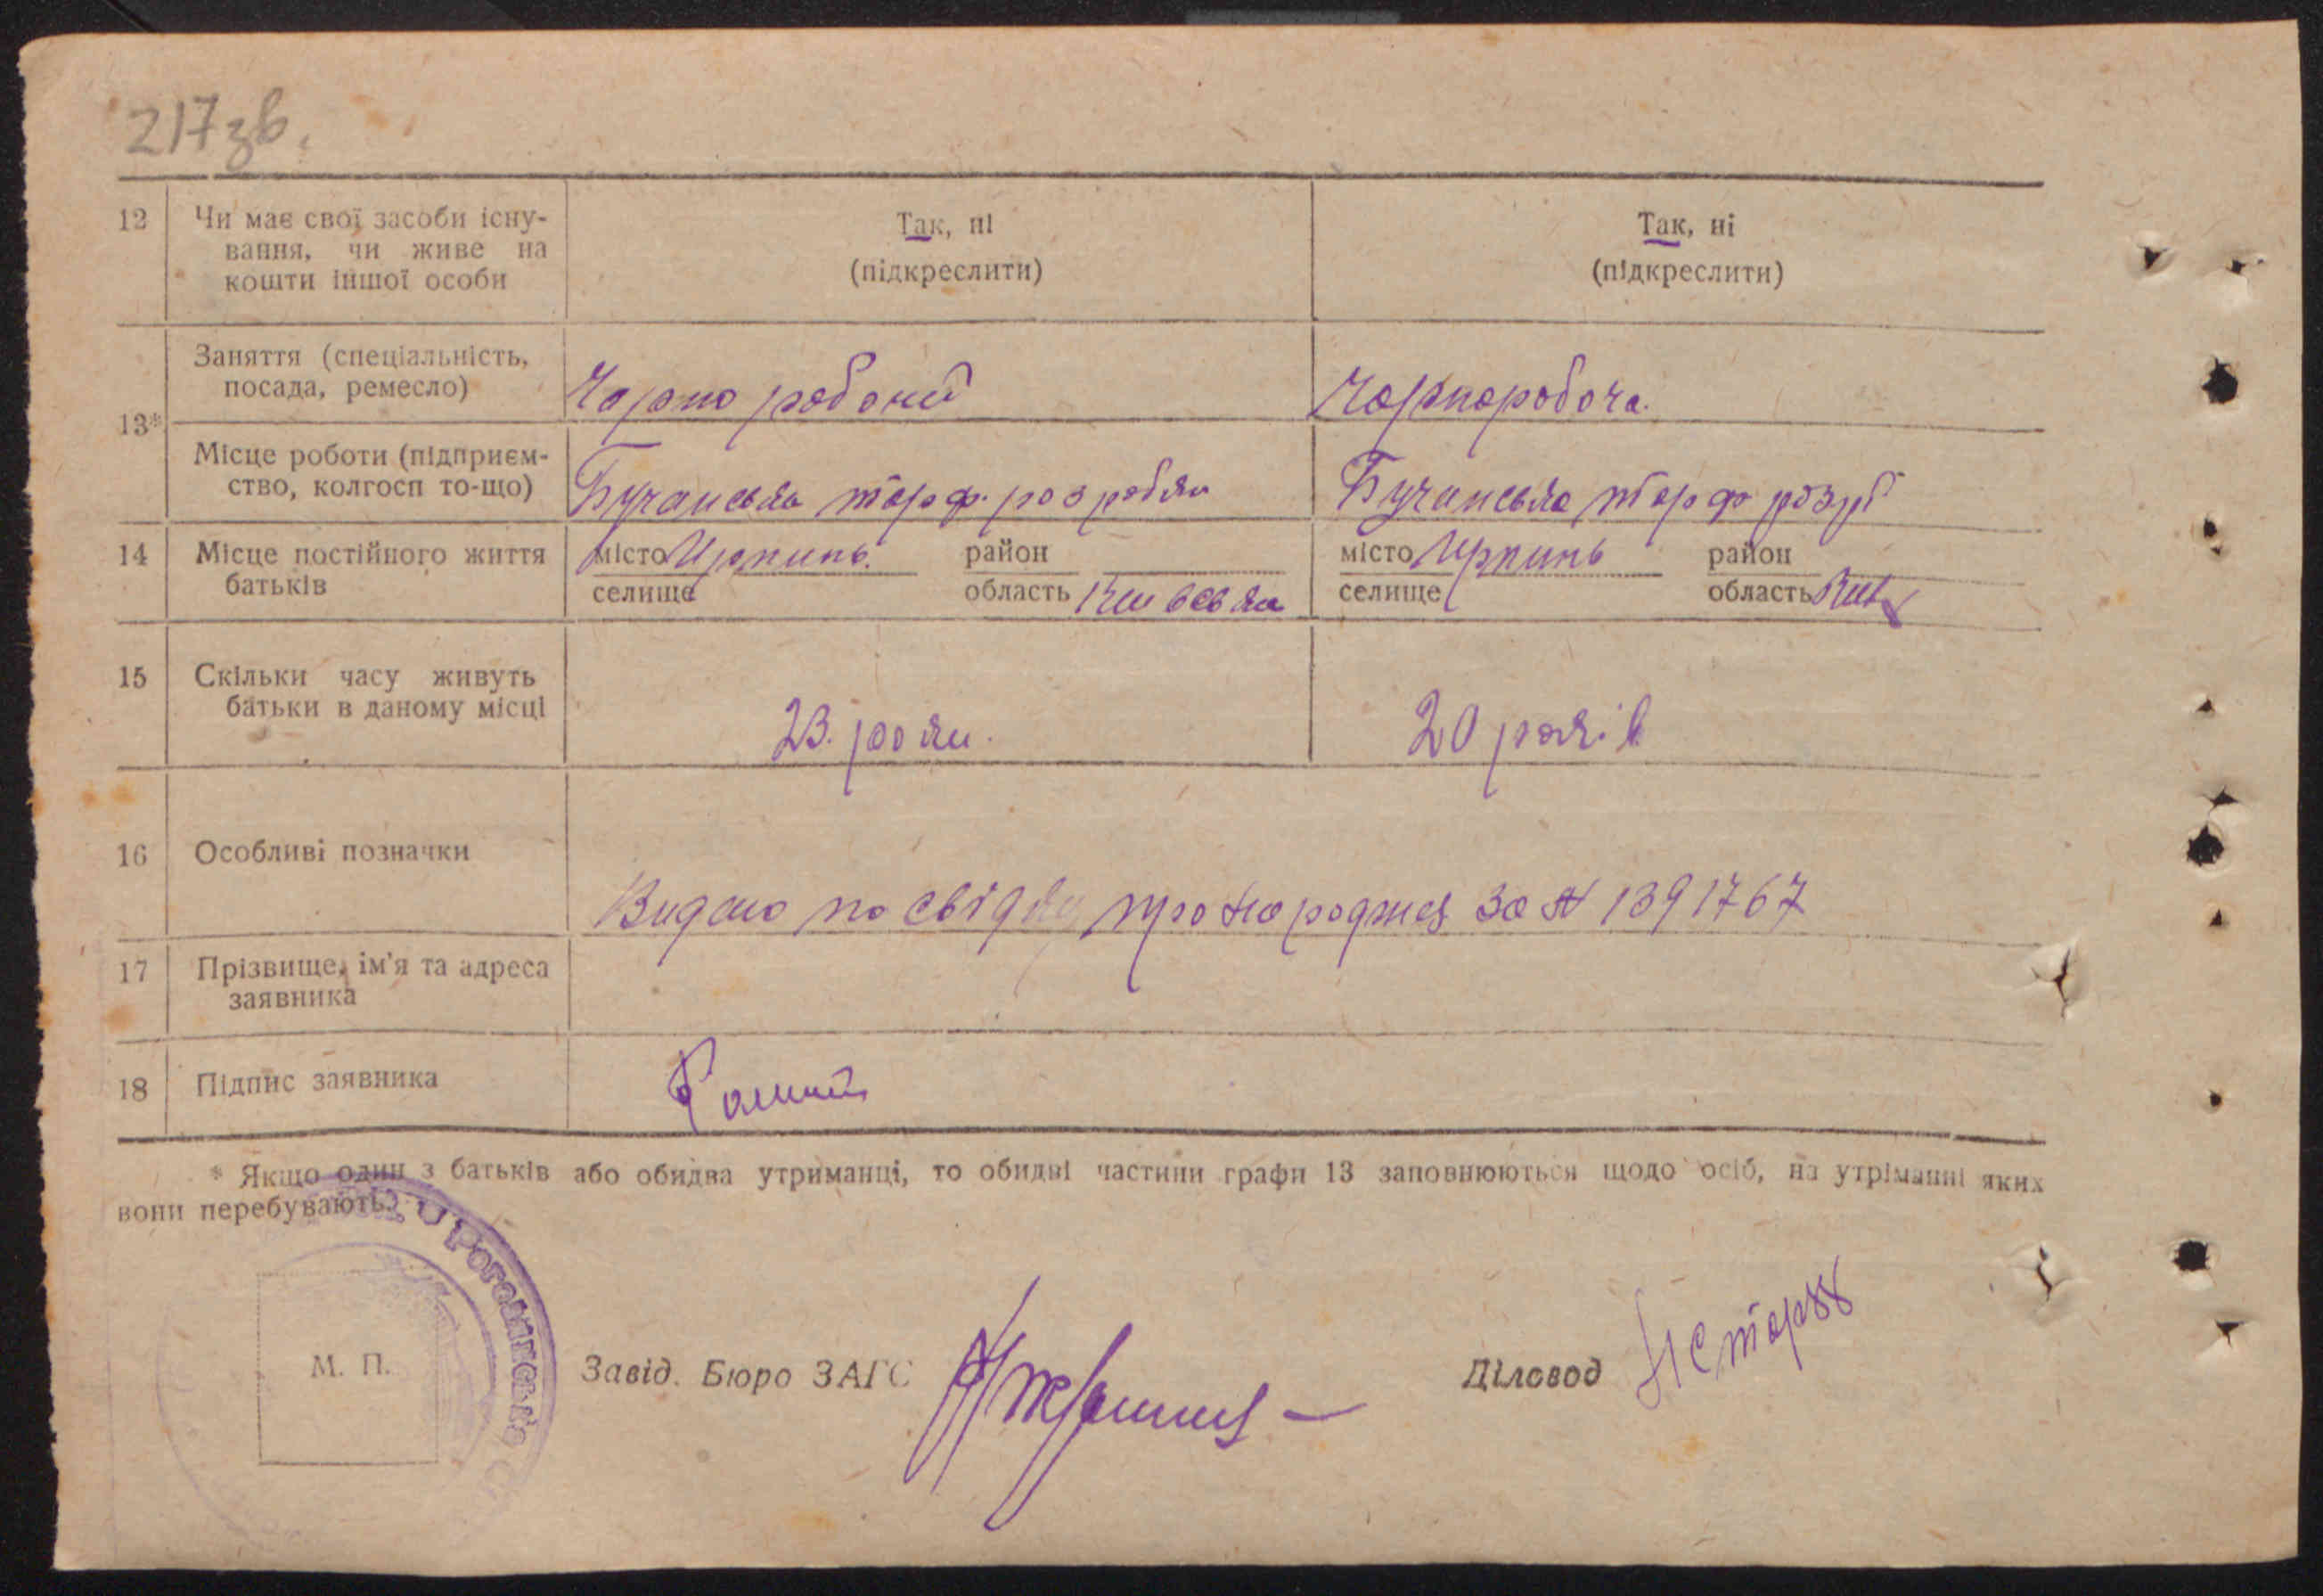 217зв.
12 Чи має свої засоби існу-
вання, чи живе на
кошти іншої особи
Так, ні
(підкреслити)
Так, ні
(підкреслити)
13*
Заняття (спеціальність,
посада, ремесло)
Чорно робочий
Чорноробоча.
Місце роботи (підприєм-
ство, колгосп то-що)
Бучанська торф. розробка
Бучанська торф розр
14 Місце постійного життя
батьків
місто Ирпинь. район
селище область Киевська
місто Ирпинь район
селище область Киев
15 Скільки часу живуть
батьки в даному місці
23. роки.
20 років
16 Особливі позначки
Видано по свідку про народжен за № 1391767
17 Прізвище, ім'я та адреса
заявника
18 Підпис заявника
* Якщо один з батьків або обидва утриманці, то обидві частини графи 13 заповнюються щодо осіб, на утріманні яких
вони перебувають.
М. П.
Завід. Бюро ЗАГС
Діловод